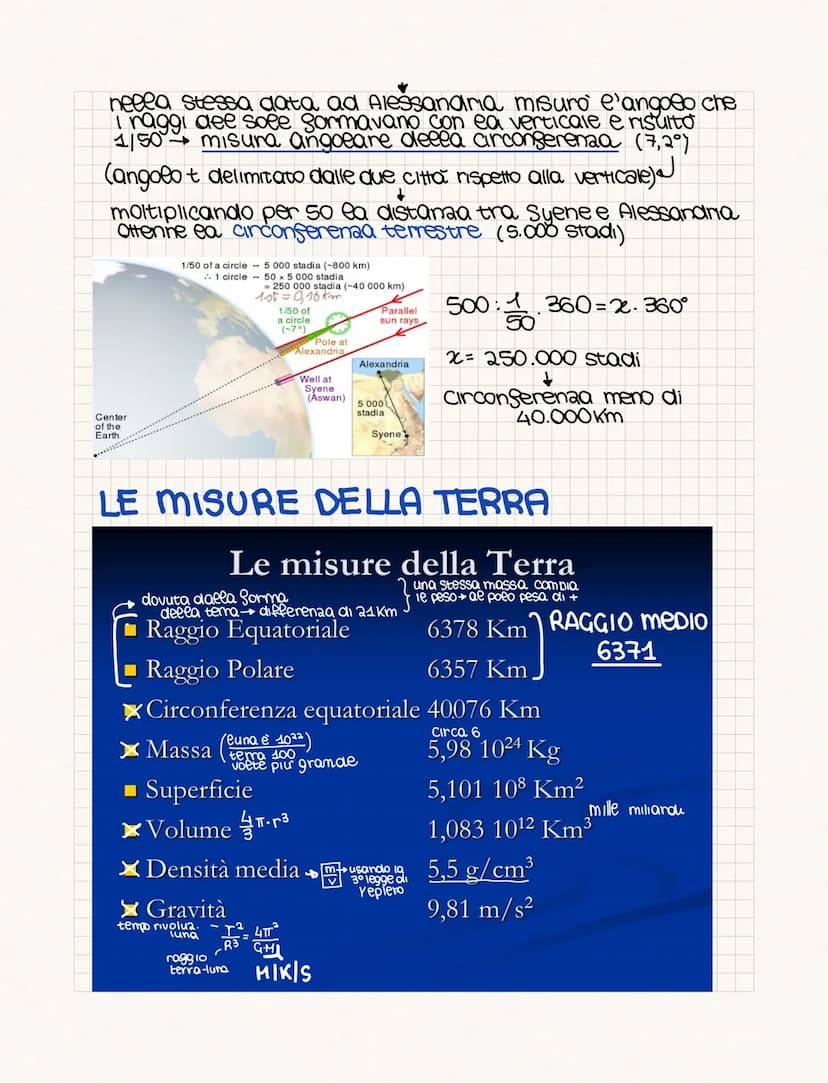 nella stessa data ad Alessandria misurò l'angolo che
i raggi del sole formavano con la verticale e risultò
1/50 → misura angolare della circonferenza (7,2°)
(angolo t delimitato dalle due città rispetto alla verticale)
moltiplicando per 50 la distanza tra Syene e Alessandria
ottenne la circonferenza terrestre (5.000 stadi)
1/50 of a circle -- 5 000 stadia (~800 km)
∴ 1 circle -- 50 × 5 000 stadia
= 250 000 stadia (~40 000 km)
1st = 0,16 km
1/50 of
a circle
(~7°)
Parallel
sun rays
Pole at
Alexandria
Well at
Syene
(Aswan)
Center
of the
Earth
Alexandria
5 000
stadia
Syene
500 : 1/50 · 360 = x · 360°
x = 250.000 stadi
↓
circonferenza meno di
40.000 km
LE MISURE DELLA TERRA
Le misure della Terra
dovuta dalla forma
della terra → differenza di 21 Km
una stessa massa cambia
il peso → al polo pesa di +
Raggio Equatoriale 6378 Km
Raggio Polare 6357 Km
RAGGIO MEDIO
6371
Circonferenza equatoriale 40076 Km
Massa (luna è 10²² 5,98 10²⁴ Kg
terra 100
volte più grande)
circa 6
Superficie 5,101 10⁸ Km²
Volume 4/3 π·r³ 1,083 10¹² Km³
mille miliardi
Densità media → m/v → usando la 5,5 g/cm³
3° legge di
Keplero
Gravità 9,81 m/s²
tempo rivoluz.
luna
T²/R³ = 4π²/G·M
raggio
terra-luna
M/K/S